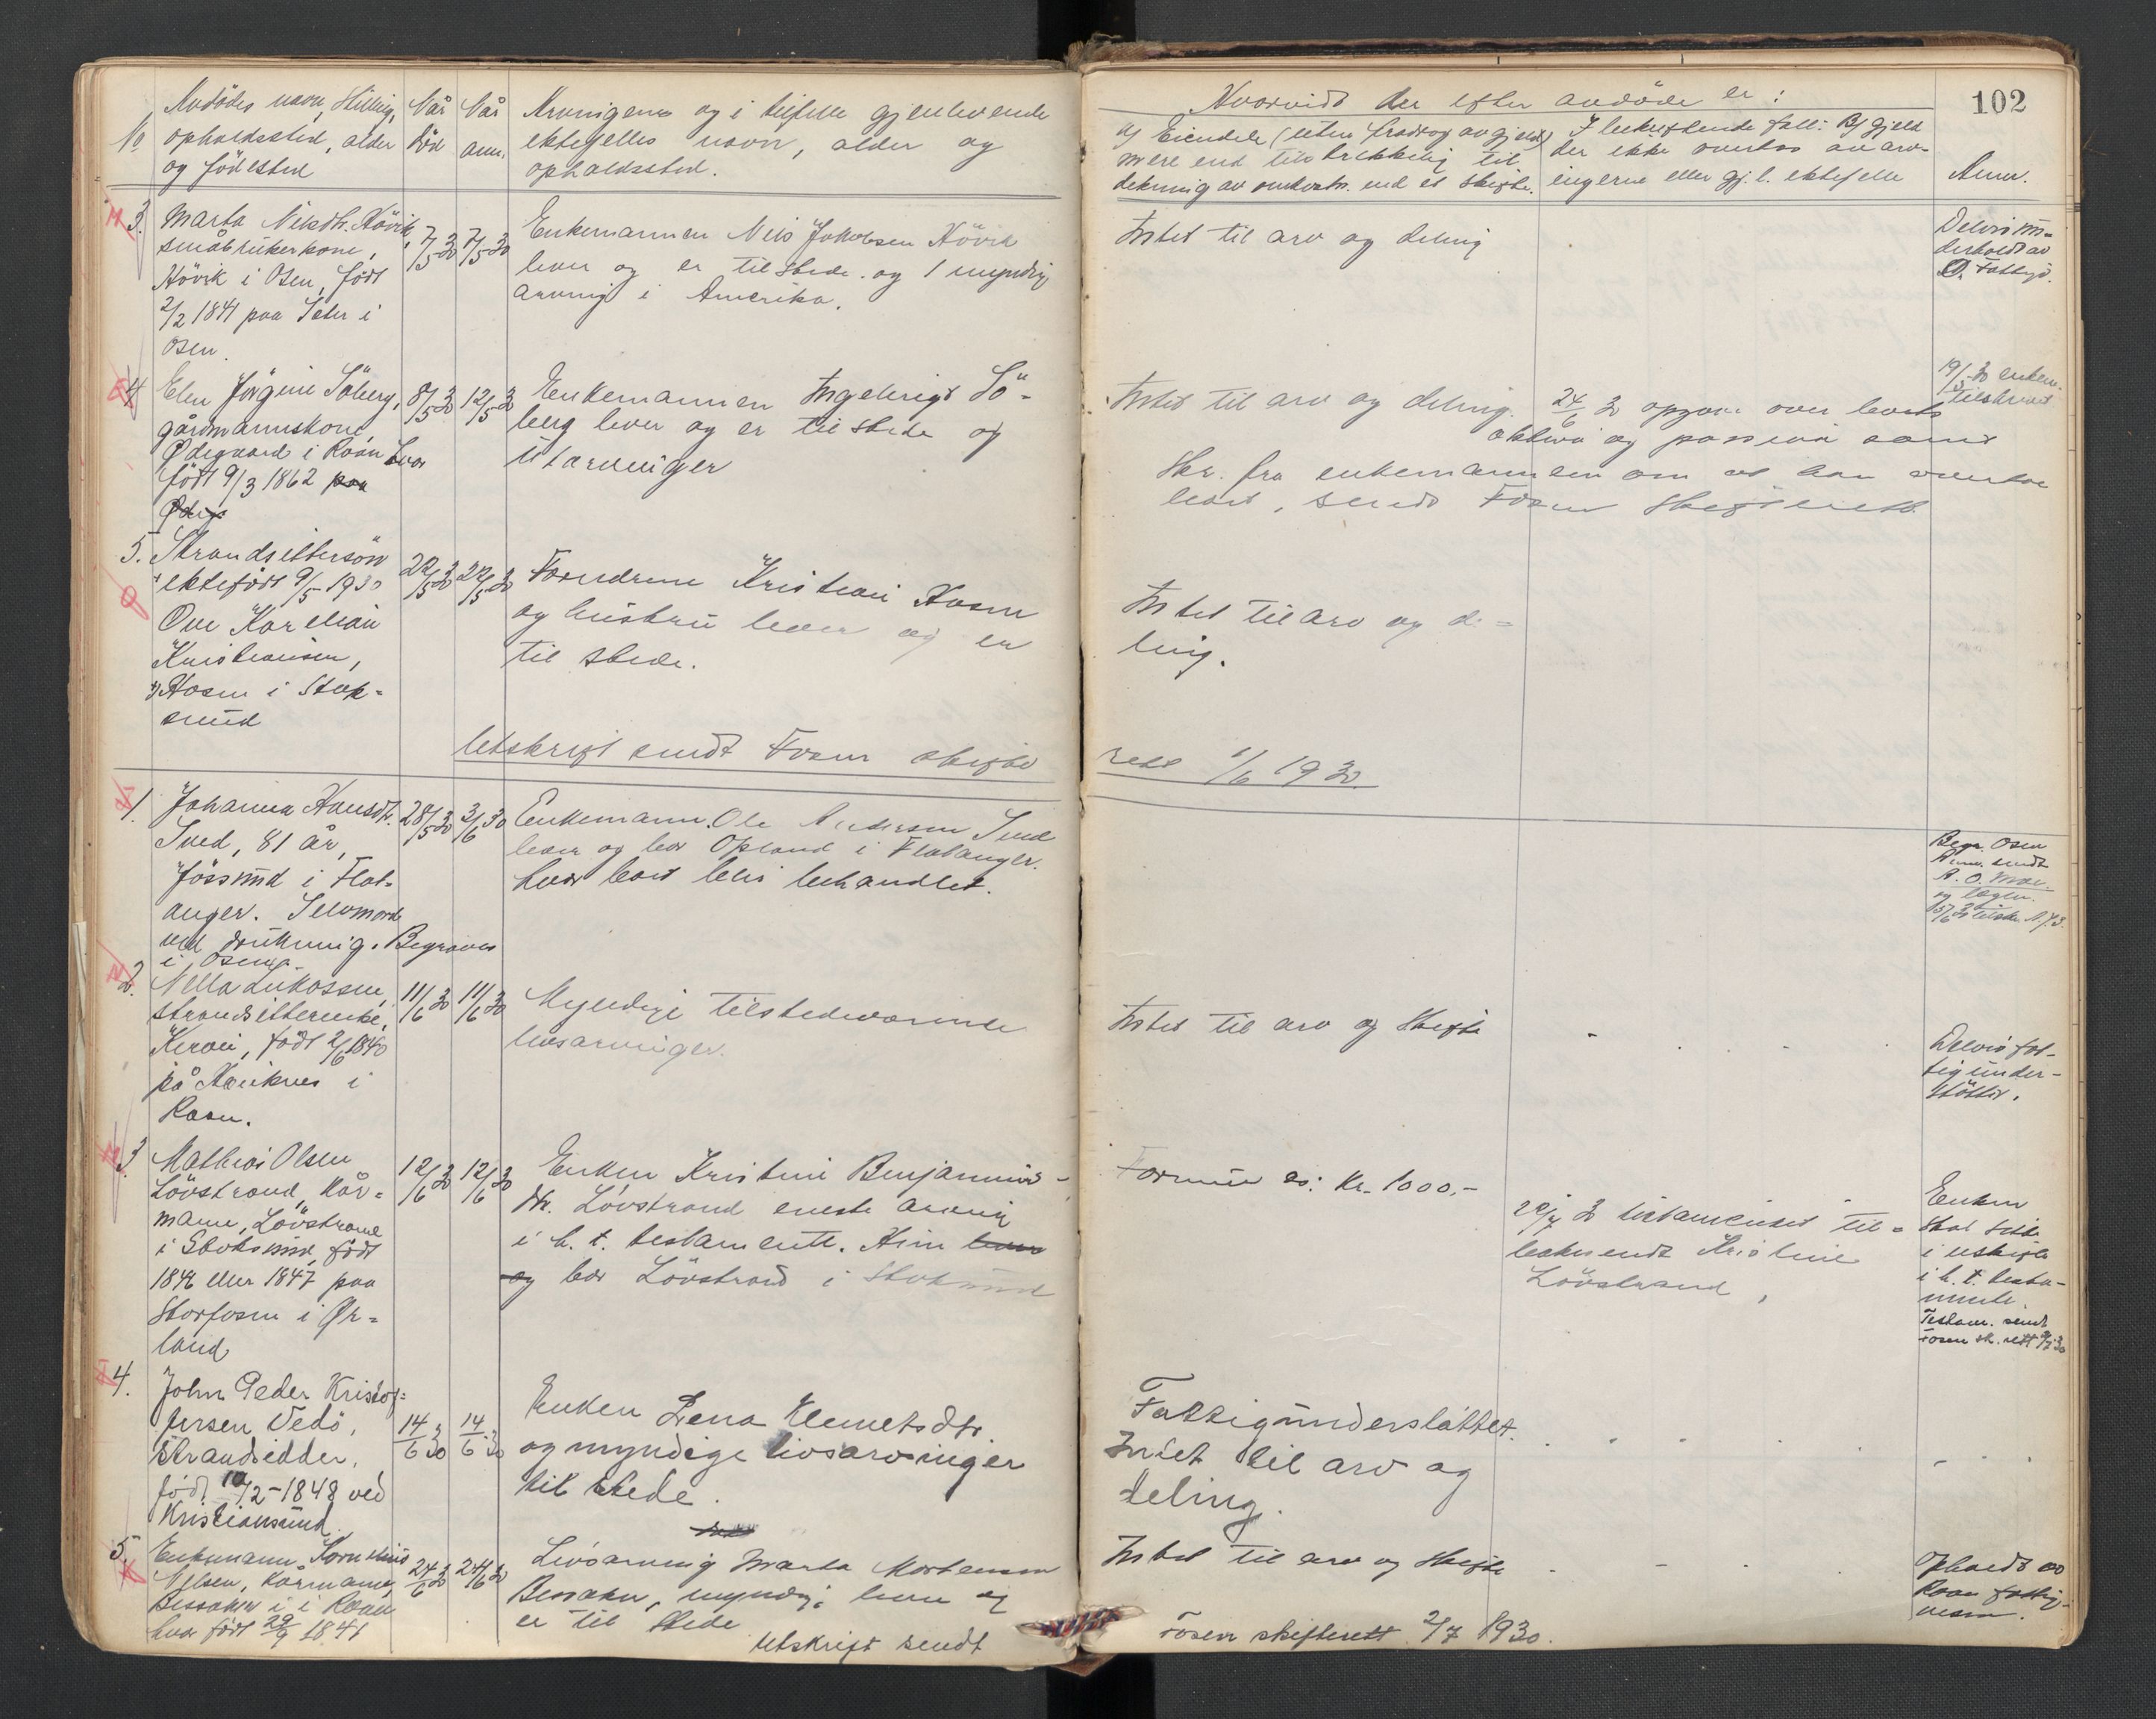 102
No
Avdødes navn, stilling,
opholdssted, alder
og fødested
Når
død
Når
anm.
Arvingens og i tilfelle gjenlevende
ektefelles navn, alder og
opholdssted.
Hvorvidt der efter avdøde er:
A) Eiendele (uten fradrag av gjeld)
mere end tilstrekkelig til
dekning av omkostn. ved et skifte.
I bekreftende fall: B) gjeld
der ikke overtas av arv-
ingerne eller gj.l. ektefelle
Anm.
3.
Marta Nilsdtr. Hövik,
småbrukerkone,
Hövik i Osen, født
2/2 1841 paa Seter i
Osen.
7/5 30
7/5 30
Enkemannen Nils Jakobsen Hövik
lever og er tilstede og 1 myndig
arving i Amerika.
Intet til arv og deling
Delvis un-
derholdt av
O. Fattigv.
4
Elen Jörgine Söberg,
gårdmannskone
Ødegaard i Roan hvor
født 9/3 1862 paa
Ødeg
8/5 30
12/5 30
Enkemannen Ingebrigt Sö-
berg lever og er tilstede og
utarvinger
Intet til arv og deling.
24/6 30 opgave over boets
aktiva og passiva samt
skr. fra enkemannen om at han overtar
boet, sendt Fosen skifterett
19/5 30 enkem.
tilskrevet
5.
Strandsittersön
ektefödt 9/5 1930
Ove Karelius
Kristiansen,
Hosen i Stok-
sund
22/5 30
22/5 30
Forældrene Kristian Hosen
og hustru lever og er
til stede.
Intet til arv og de-
ling.
Utskrift sendt Fosen skifte
rett 1/6 1930.
1.
Johanna Hansdtr.
Sved, 81 år,
Jössund i Flat-
anger. Selvmord
ved drukning. Begraves
i Osen.
28/5 30
3/6 30
Enkemann Ole Andersen Sved
lever og bor Opland i Flatanger.
hvor boet blir behandlet.
Begr. Osen
Anm. sendt
2.
Nella Lukassen,
strandsitterenke,
Kiran, født 2/6 1840
på Hauknes i
Roan.
11/6 30
11/6 30
Myndige tilstedeværende
livsarvinger.
Intet til arv og skifte
Delvis fat-
tigunder-
støttet.
3
Mathias Olsen
Lövstrand, kår-
mann, Lövstrand
i Stoksund, født
1846 eller 1847 paa
Storfosen i Ør-
land
12/6 30
12/6 30
Enken Kristine Benjamins-
dtr. Lövstrand eneste arving
i h. t. testamente. Hun lever
og bor Lövstrand i Stoksund
Formue ca: kr. 1000,-
29/7 30 testamentet til-
bakesendt Kristine
Lövstrand,
Enken
skal sitte
i uskifte
i h. t. testa-
mente.
Testam. sendt
Fosen sk. rett
4.
John Peder Kristof-
fersen Vedö,
Strandsidder,
född 10/2 - 1848 ved
Kristiansund.
14/6 30
14/6 30
Enken Lena Klemetsdtr.
og myndige livsarvinger
til stede.
Fattigunderstöttet.
Intet til arv og
deling.
5.
Enkemann Kornelius
Nilsen, kårmann,
Bessaker i Roan
hvor født 29/9 1841
24/6 30
24/6 30
Livsarving Marta Mortensen
Bessaker, myndig, lever og
er til stede
Intet til arv og skifte
Opholdt av
Roan fattig-
vesen.
Utskrift sendt
Fosen skifterett 2/7 1930.